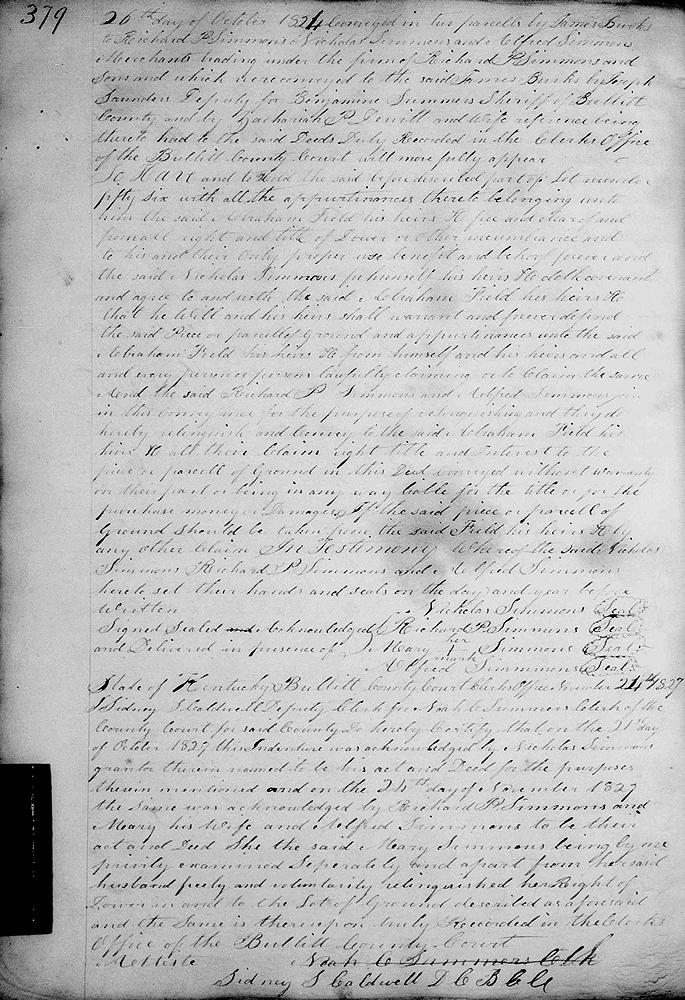 379
26th day of October 1824 Conveyed in two parcells by James Burks
to Richard P Simmons Nicholas Simmons and Alfred Simmons
Merchants trading under the firm of Richard P Simmons and
Sons and which were conveyed to the said James Burks by Joseph
Saunders Deputy for Benjamine Summers Sheriff of Bullitt
County and by Zachariah P Dewitt and Wife reference being
thereto had to the said Deeds Duly Recorded in the Clerks Office
of the Bullitt County Court will more fully appear
To HAVE and to Hold the said before described part of Lot number
fifty six with all the appurtinances thereto belonging unto
him the said Abraham Field his heirs &c free and clear of and
from all right and title of Dower or Other incumbrance and
to his and their Only proper use benefit and behoof forever and
the said Nicholas Simmons for himself his heirs &c doth covenant
and agree to and with the said Abraham Field his heirs &c
that he Will and his heirs shall warrant and forever defend
the said Piece or parcell of Ground and appurtinances unto the said
Abraham Field his heirs &c from himself and his heirs and all
and every person or persons lawfully claiming or to Claim the same
And the said Richard P Simmons and Alfred Simmons join
in this Conveyance for the purpose of relinquishing and they do
hereby relinquish and Convey to the said Abraham Field his
heirs &c all their Claim right title and Interest to the
piece or parcell of Ground in this Deed conveyed without warranty
on their part or being in any way liable for the title or for the
purchase money or Damages If the said piece or parcell of
Ground should be taken from the said Field his heirs &c by
any other Claim In Testimony Whereof the said Nicholas
Simmons Richard P Simmons and Alfred Simmons
hereto set their hands and seals on the day and year before
Written
Nicholas Simmons (Seal)
Signed Sealed and Acknowledged Richard P Simmons (Seal)
and Delivered in presence of Mary her mark Simmons (Seal)
Alfred Simmons (Seal)
State of Kentucky Bullitt County Court Clerks Office November 24th 1827
I Sidney S Caldwell Deputy Clerk for Noah C Summers Clerk of the
County Court for said County Do hereby Certify that on the 21st day
of October 1827 this Indenture was acknowledged by Nicholas Simmons
grantor therein named to be his act and Deed for the purposes
therein mentioned and on the 24th day of November 1827
the Same was acknowledged by Richard P Simmons and
Mary his Wife and Alfred Simmons to be their
act and Deed She the said Mary Simmons being by me
privily examined Seperately and apart from her said
husband freely and voluntarily relinquished her Right of
Dower in and to the Lot of Ground described as aforesaid
and the Same is thereupon truly Recorded in the Clerks
Office of the Bullitt County Court
Atteste Noah C Summers Clk
Sidney S Caldwell D C B C C